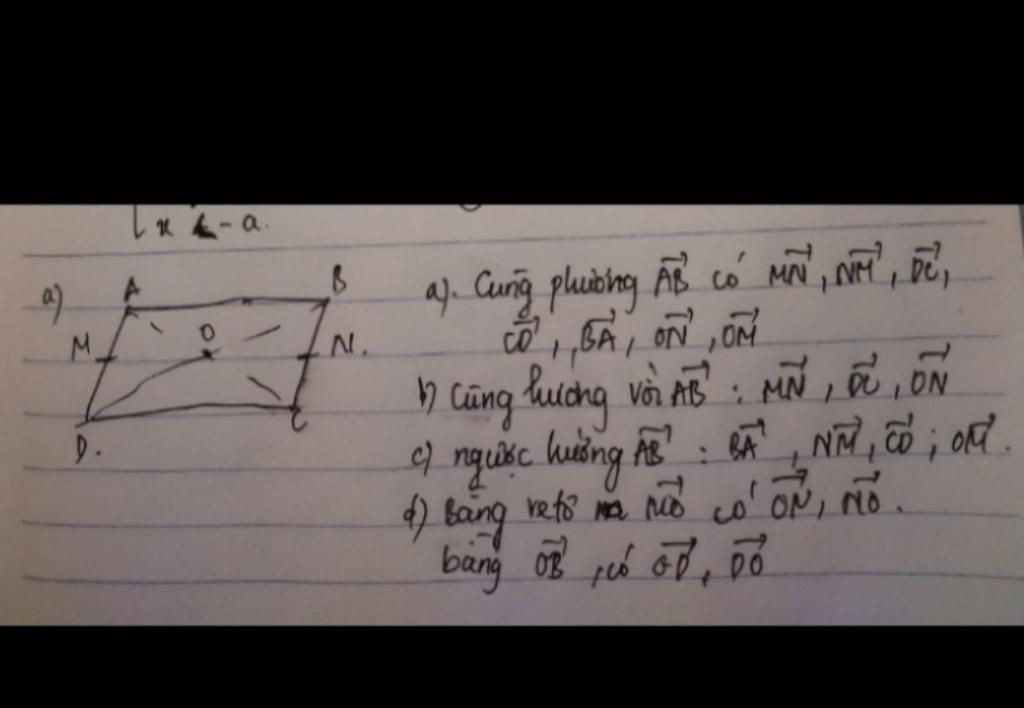 x < -a.
a)
A
B
a). Cùng phương AB có MN, NM, DC,
M
O
N.
CD, BA, ON, OM
b) Cùng hướng với AB : MN, DC, ON
D.
C
c) ngược hướng AB : BA, NM, CD ; OM.
d) Bằng vetơ MO có ON, NO.
bằng OB, có OD, DO